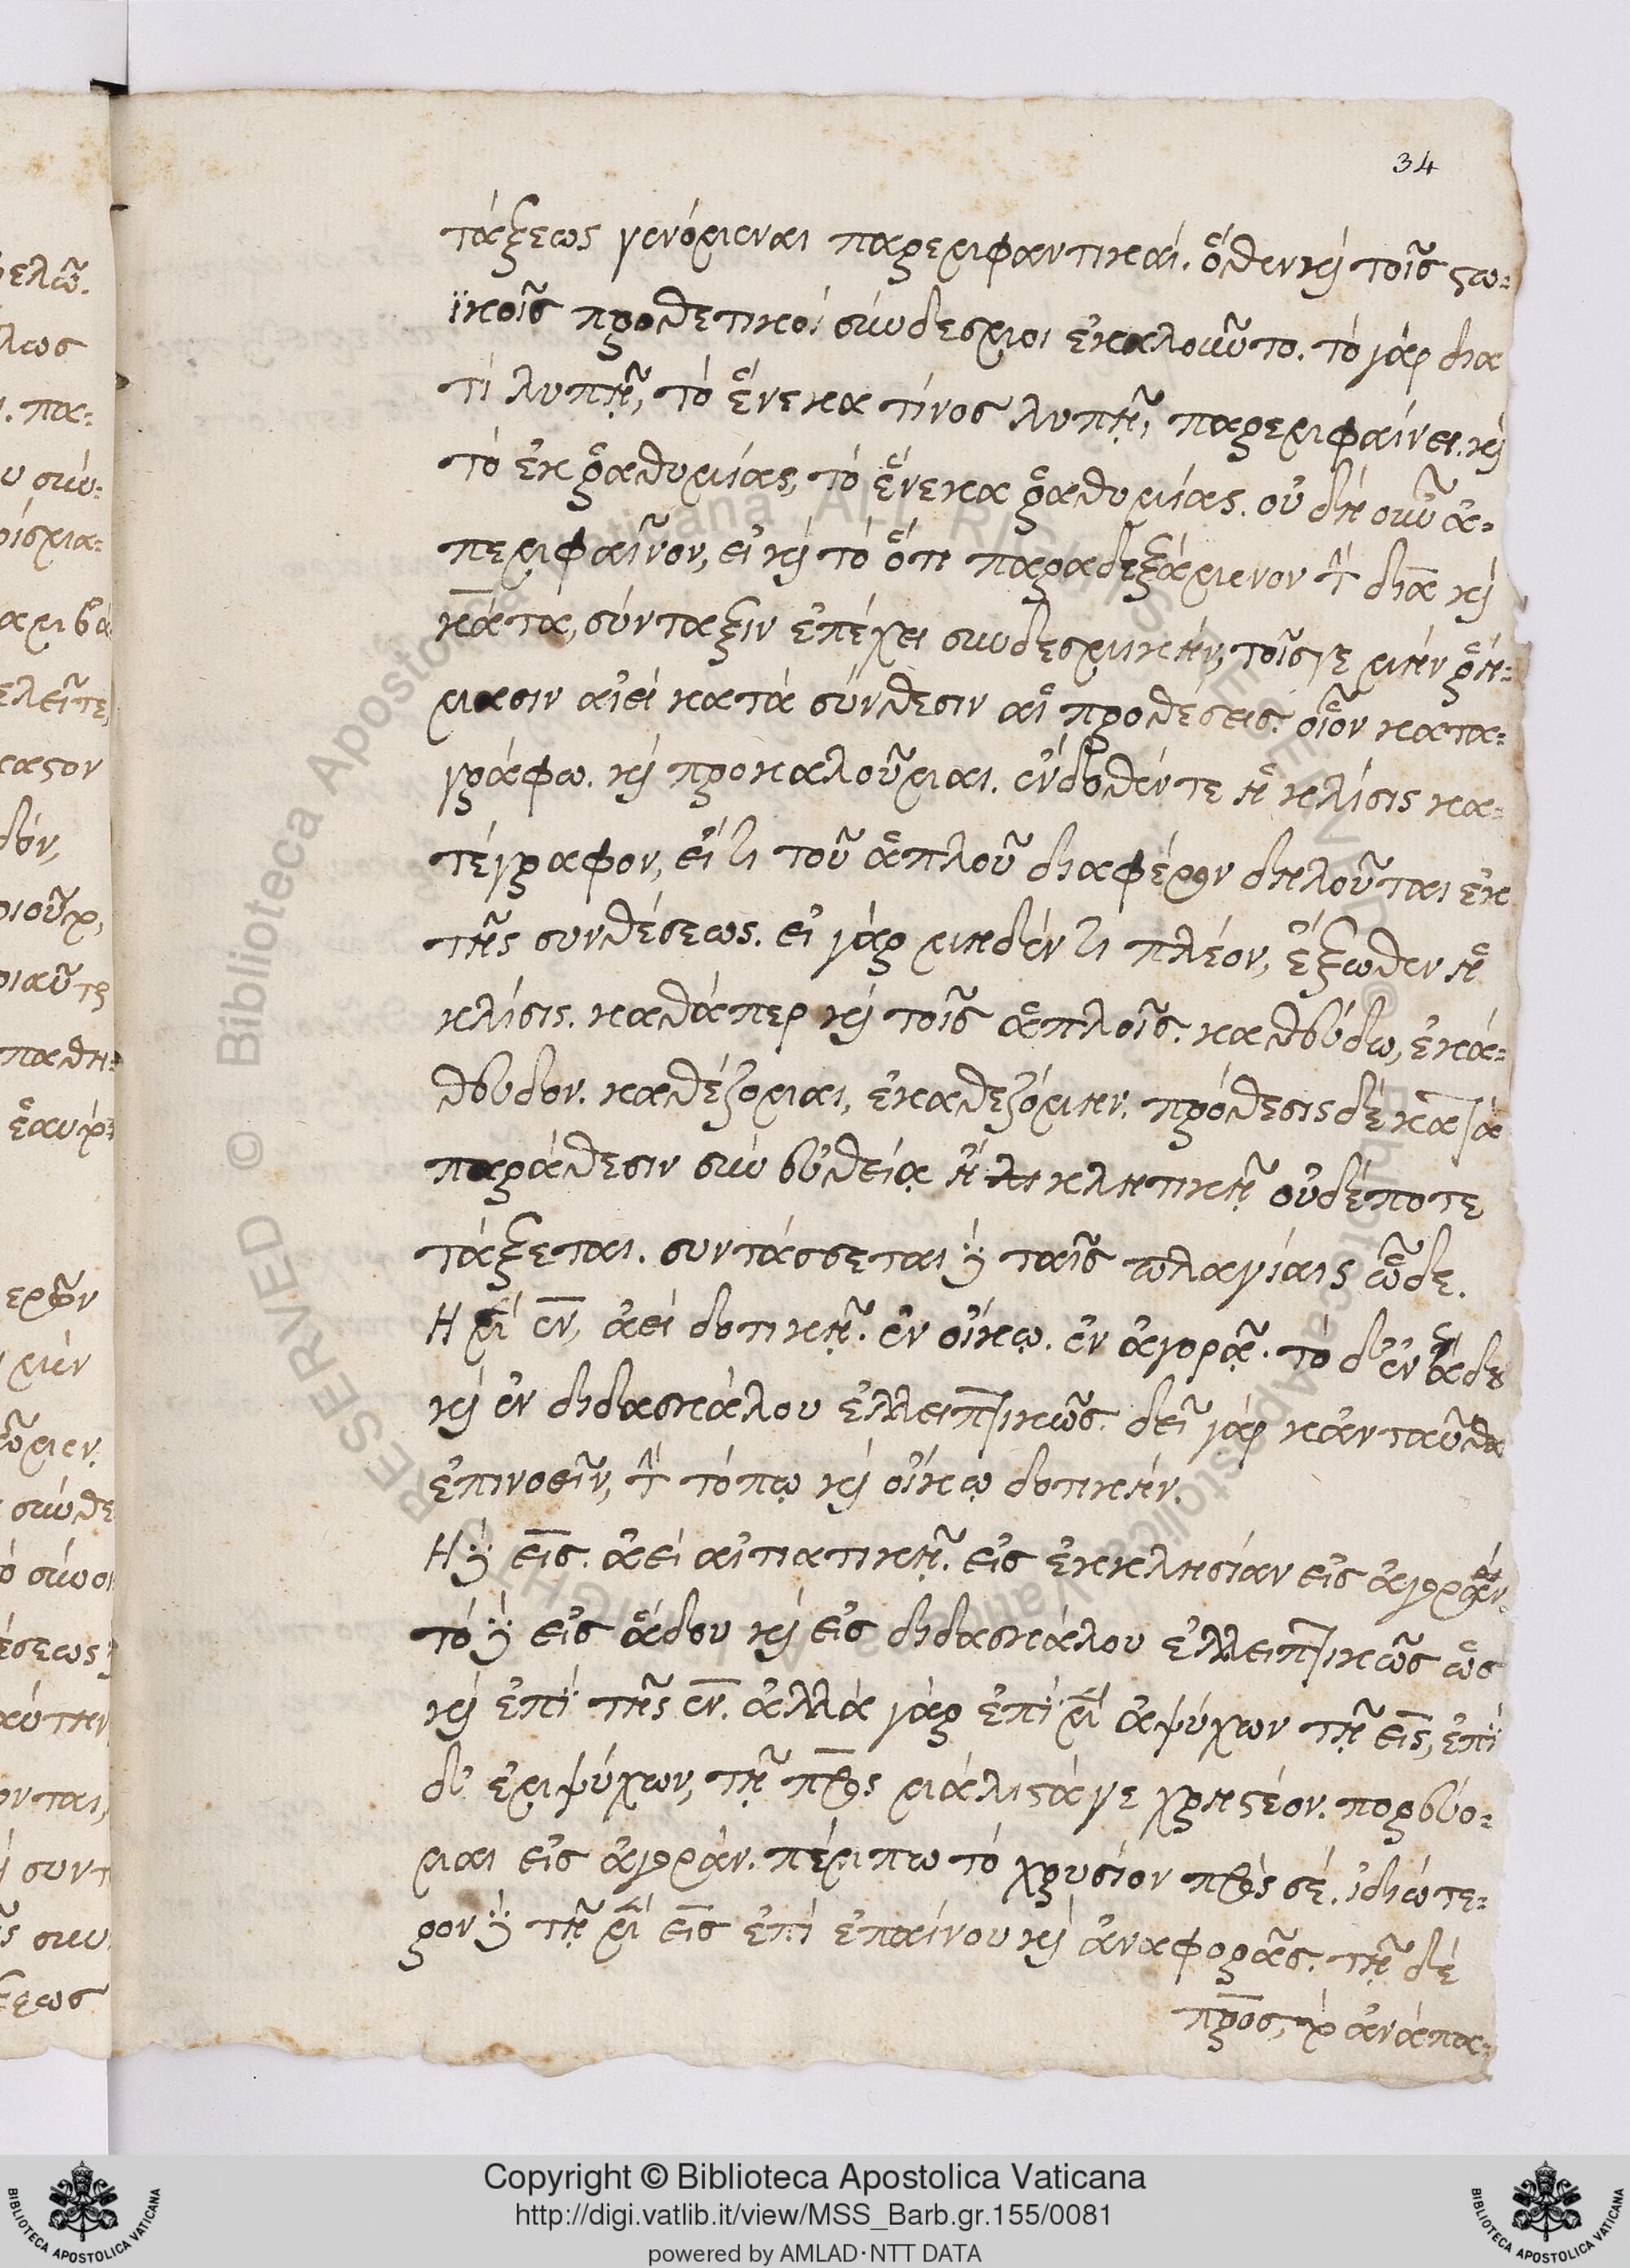 34
τάξεως γενόμεναι παρεμφαντικαί. ὅθεν καὶ τοῖς στω-
ϊκοῖς προθετικοὶ σύνδεσμοι ἐκαλοῦντο. τὸ γὰρ δια
τί λυπῇ, τὸ ἕνεκα τίνος λυπῇ, παρεμφαίνει. καὶ
τὸ ἐκ ῥαθυμίας, τὸ ἕνεκα ῥαθυμίας. οὐ δὴ οὖν ἀ-
πεμφαῖνον, εἰ καὶ τὸ ὅτι παραδεξάμενον τὴν διὰ καὶ
κατὰ, σύνταξιν ἐπέχει συνδεσμικήν, τοῖς γε μὴν ῥή-
μασιν αἰεὶ κατὰ σύνθεσιν αἱ προθέσεις. οἷον κατα-
γράφω. καὶ προκαλοῦμαι. ἔνδοθέν τε ἡ κλίσις κα-
τέγραφον, εἴ τι τοῦ ἁπλοῦ διαφέρον δηλοῦται ἐκ
τῆς συνθέσεως. εἰ γὰρ μηδέν τι πλέον, ἔξωθεν ἡ
κλίσις. καθάπερ καὶ τοῖς ἁπλοῖς. καθεύδω, ἐκά-
θευδον. καθέζομαι, ἐκαθεζόμην. πρόθεσις δὲ κατὰ
παράθεσιν σὺν εὐθείᾳ ἢ κλητικῇ οὐδέποτε
τάξεται. συντάσσεται δὲ ταῖς πλαγίαις ὧδε.
Ἡ μὲν ἐν, ἀεὶ δοτικῇ. ἐν οἴκῳ. ἐν ἀγορᾷ. τὸ δ' ἐν ᾅδου
καὶ ἐν διδασκάλου ἐλλειπτικῶς. δεῖ γὰρ κἀνταῦθα
ἐπινοεῖν, τὴν τόπῳ καὶ οἴκῳ δοτικήν.
Ἡ δὲ εἰς. ἀεὶ αἰτιατικῇ. εἰς ἐκκλησίαν εἰς ἀγοράν.
τὸ δὲ εἰς ᾅδου καὶ εἰς διδασκάλου ἐλλειπτικῶς ὡς
καὶ ἐπὶ τῆς ἐν. ἀλλὰ γὰρ ἐπὶ μὲν ἀψύχων τῇ εἰς, ἐπὶ
δ' ἐμψύχων, τῇ πρὸς μάλιστά γε χρηστέον. πορεύο-
μαι εἰς ἀγοράν. πέμπω τὸ χρυσίον πρὸς σέ. ἰδιώτε-
ρον δὲ τῇ μὲν εἰς ἐπὶ ἐπαίνου καὶ ἀναφορᾶς. τῇ δὲ
πρὸς, ἀνάπα-
Copyright © Biblioteca Apostolica Vaticana
http://digi.vatlib.it/view/MSS_Barb.gr.155/0081
powered by AMLAD·NTT DATA